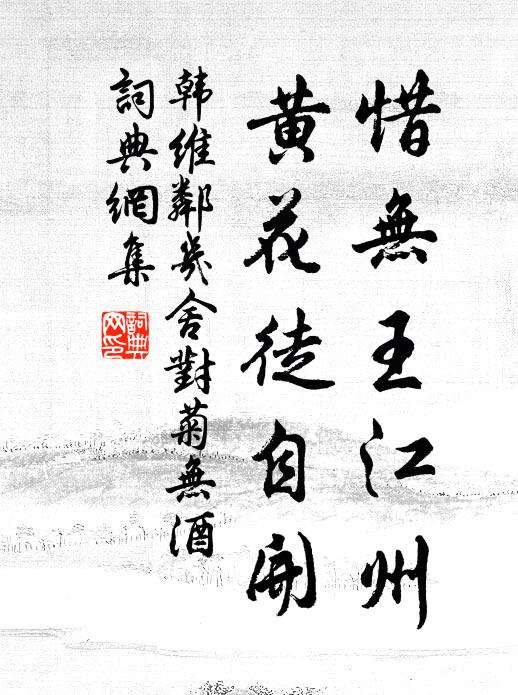 惜無王江州
黃花徒自開
韩維鄰幾舍對菊無酒
詞典網集
詞典網印